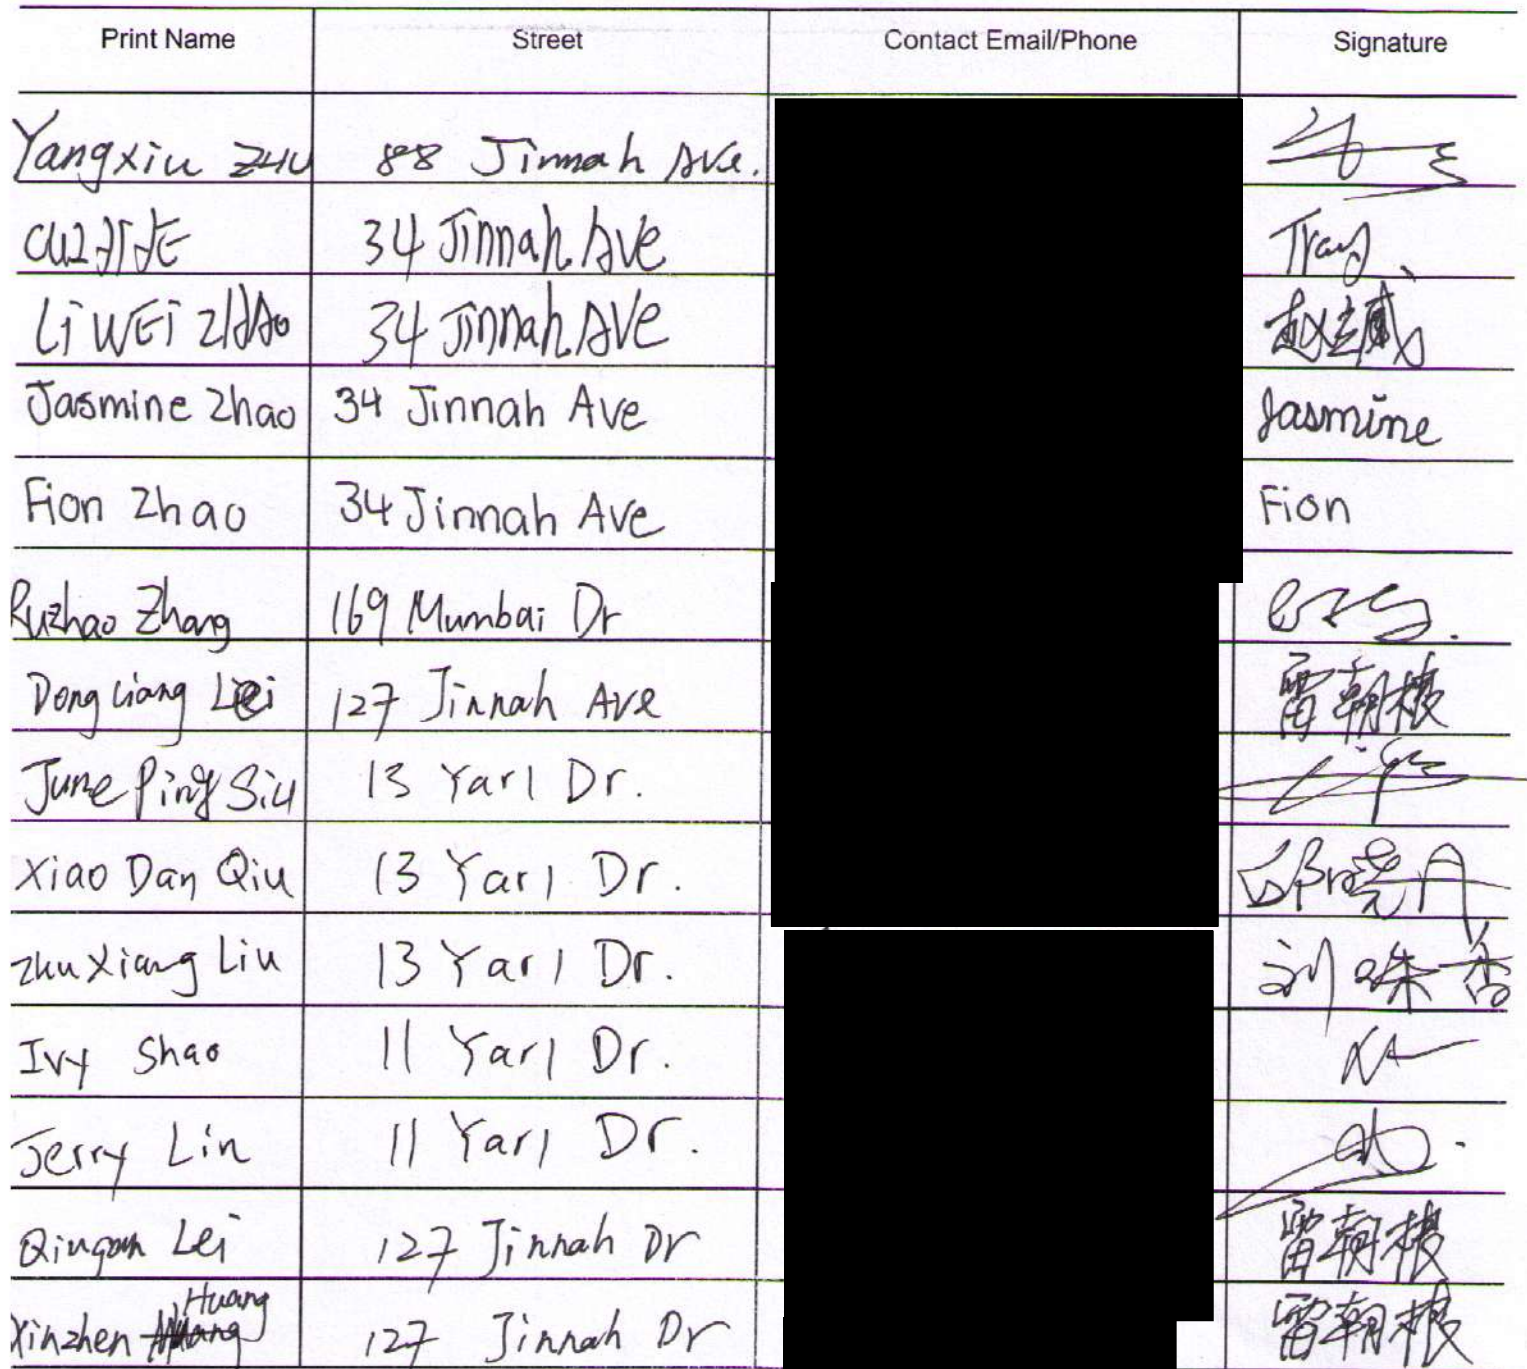 Print Name Street Contact Email/Phone Signature
Yangxiu Zhu 88 Jinnah Ave.
34 Jinnah Ave
Li WEi ZHAo 34 Jinnah AVe 赵立威
Jasmine Zhao 34 Jinnah Ave Jasmine
Fion Zhao 34 Jinnah Ave Fion
Ruzhao Zhang 169 Mumbai Dr
Dong Liang Lei 127 Jinnah Ave 雷朝根
June Ping Siu 13 Yarl Dr.
Xiao Dan Qiu 13 Yarl Dr. 邱晓丹
Zhu Xiang Liu 13 Yarl Dr. 刘咮香
Ivy Shao 11 Yarl Dr.
Jerry Lin 11 Yarl Dr.
Lei 127 Jinnah Dr 雷朝根
Huang
Xinzhen 127 Jinnah Dr 雷朝根